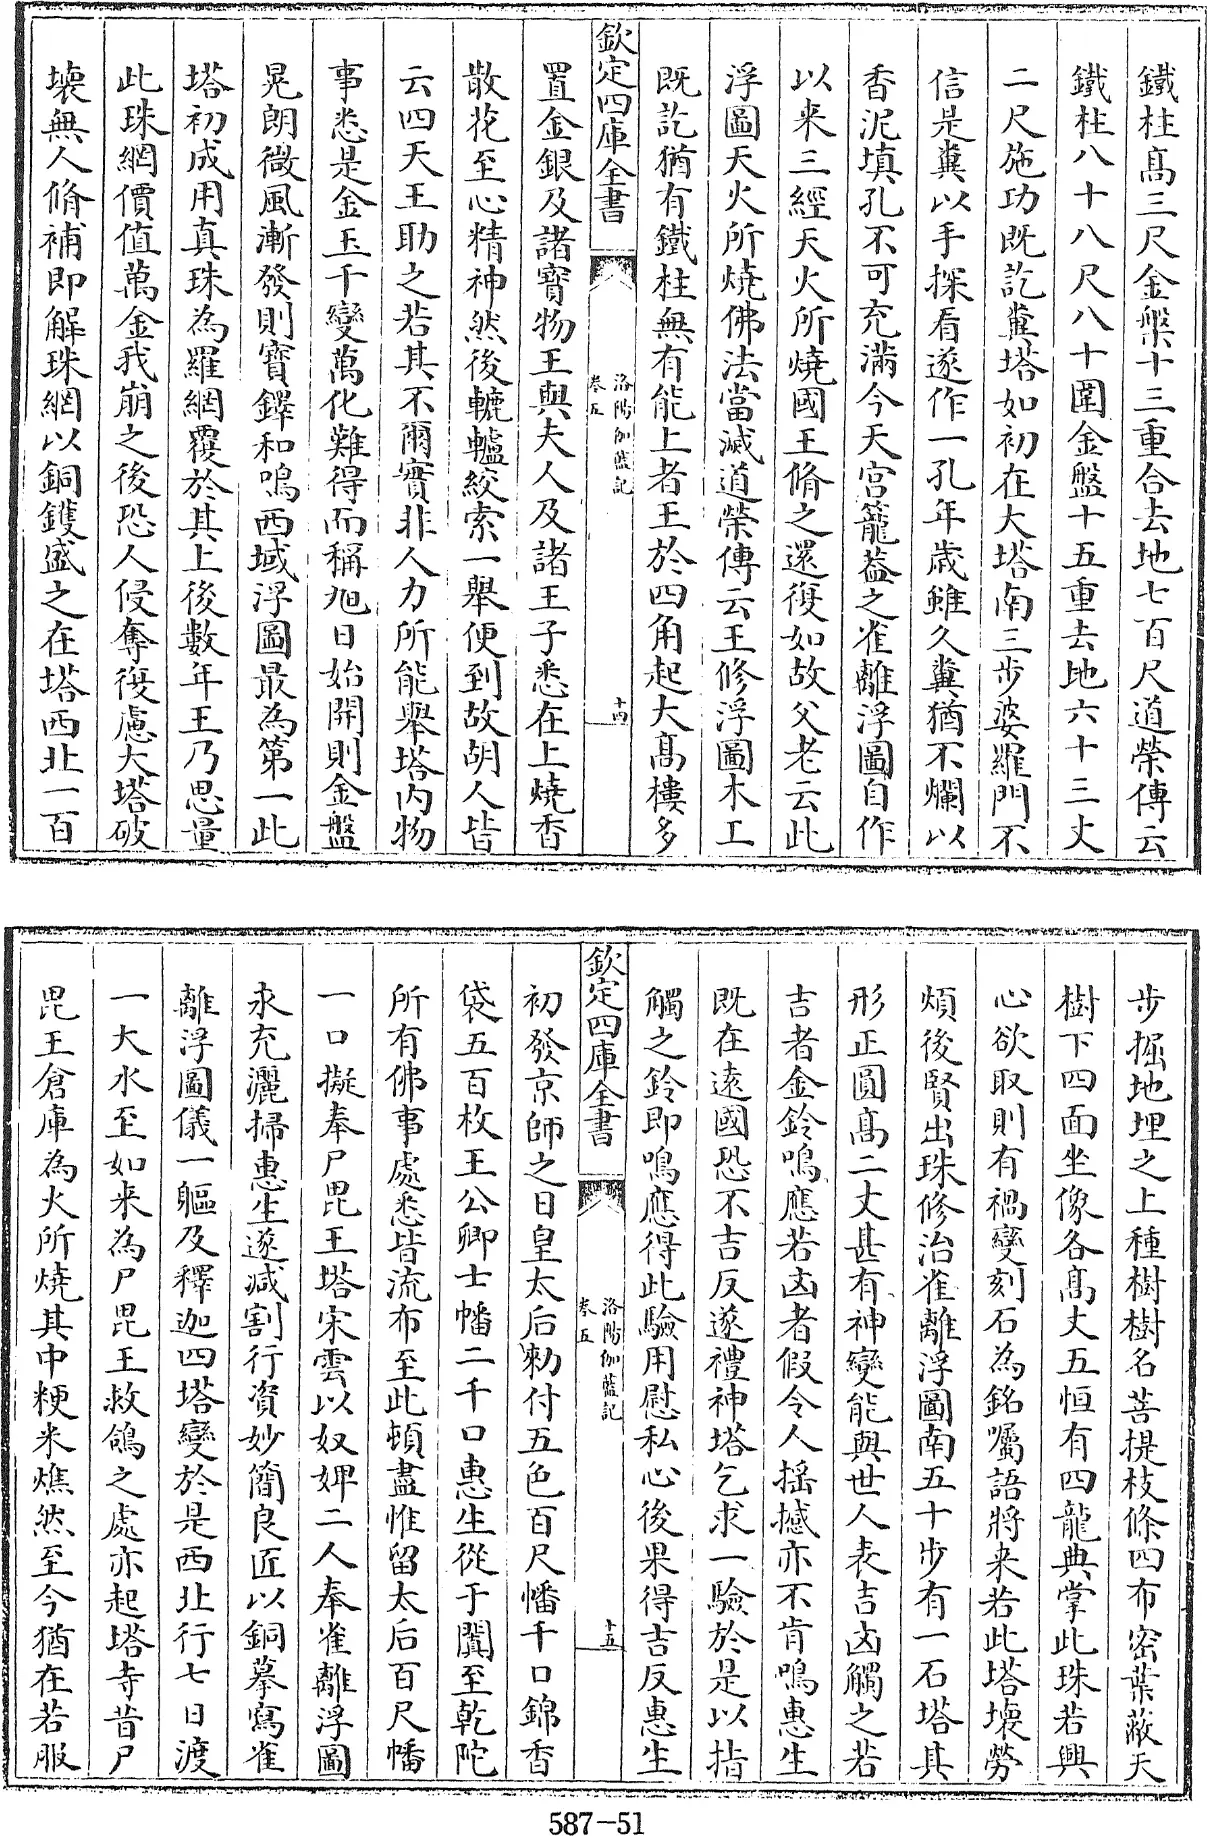 鐵柱高三尺金槃十三重合去地七百尺道榮傳云
鐵柱八十八尺八十圍金盤十五重去地六十三丈
二尺施功既訖糞塔如初在大塔南三步婆羅門不
信是糞以手探看遂作一孔年歲雖久糞猶不爛以
香泥填孔不可充滿今天宫籠葢之雀離浮圖自作
以来三經天火所燒國王脩之還復如故父老云此
浮圖天火所燒佛法當滅道榮傳云王修浮圖木工
既訖猶有鐵柱無有能上者王於四角起大高樓多
欽定四庫全書
洛陽伽藍記
卷五
十四
置金銀及諸寳物王與夫人及諸王子悉在上燒香
散花至心精神然後轆轤絞索一舉便到故胡人皆
云四天王助之若其不爾實非人力所能舉塔内物
事悉是金玉千變萬化難得而稱旭日始開則金盤
晃朗微風漸發則寳鐸和鳴西域浮圖最為第一此
塔初成用真珠為羅網覆於其上後數年王乃思量
此珠網價值萬金我崩之後恐人侵奪復慮大塔破
壞無人脩補即解珠網以銅鑊盛之在塔西北一百
步掘地埋之上種樹樹名菩提枝條四布密葉蔽天
樹下四面坐像各高丈五恒有四龍典掌此珠若興
心欲取則有禍變刻石為銘囑語將来若此塔壞勞
煩後賢出珠修治雀離浮圖南五十步有一石塔其
形正圓高二丈甚有神變能與世人表吉凶觸之若
吉者金鈴鳴應若凶者假令人搖撼亦不肯鳴惠生
既在逺國恐不吉反遂禮神塔乞求一驗於是以指
觸之鈴即鳴應得此驗用慰私心後果得吉反惠生
欽定四庫全書
洛陽伽藍記
卷五
十五
初發京師之日皇太后勅付五色百尺幡千口錦香
袋五百枚王公卿士幡二千口惠生從于闐至乾陀
所有佛事處悉皆流布至此頓盡惟留太后百尺幡
一口擬奉尸毘王塔宋雲以奴婢二人奉雀離浮圖
永充灑掃惠生遂減割行資妙簡良匠以銅摹寫雀
離浮圖儀一軀及釋迦四塔變於是西北行七日渡
一大水至如来為尸毘王救鴿之處亦起塔寺昔尸
毘王倉庫為火所燒其中粳米燋然至今猶在若服
587-51